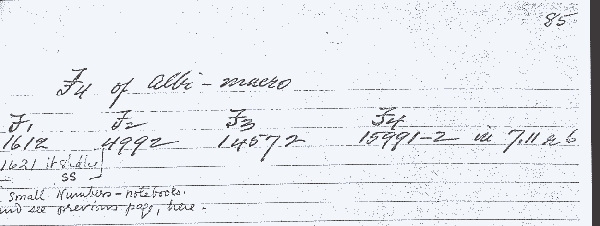 85
F4 of albi-macro
F1 F2 F3 F4
1612 4992 14572 15991-2 in 7.11 a 6
1621 it sibling
SS
Small Numbers-notebooks.
and see previous page, here.